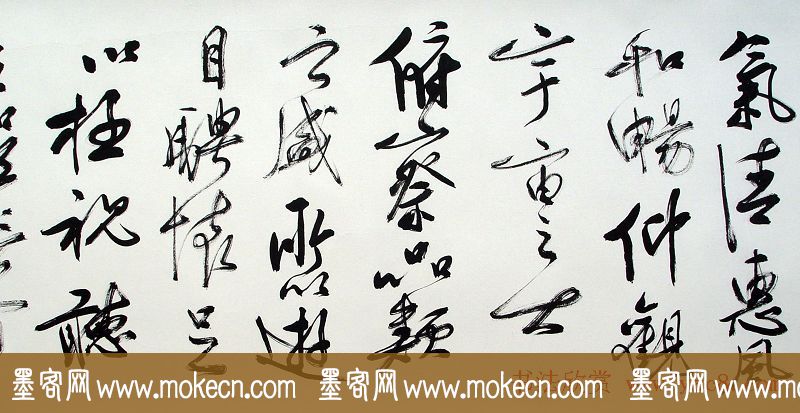 氣清惠風
和暢仰觀
宇宙之大
俯察品類
之盛所以遊
目騁懷足
以極視聽
书法欣赏
墨客网 www.mokecn.com 墨客网 www.mokecn.com 墨客网 www.mo